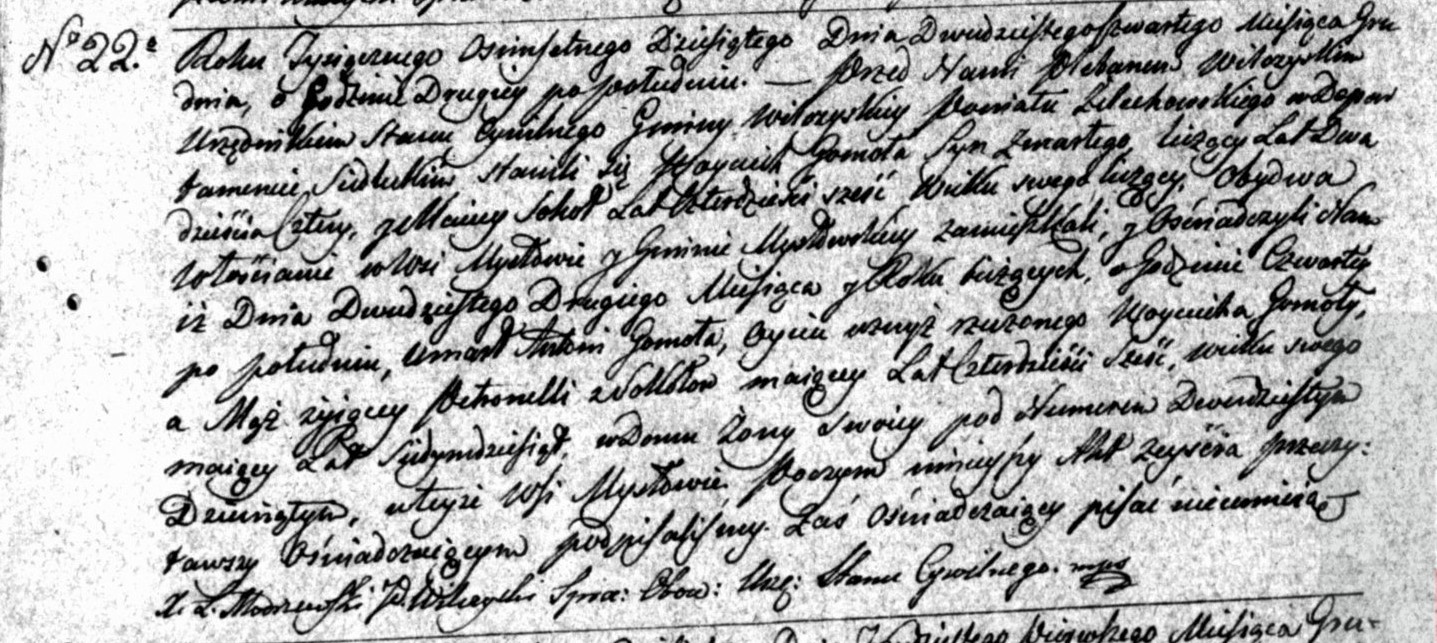 No 22.
Roku Tysiącznego Osimsetnego Dziesiątego Dnia Dwudziestegoszwartego Miesiąca Gru
dnia, o Godzinie Drugiey po południu. — Przed Nami Plebanem Wilczyskim
Urzędnikiem Stanu Cywilnego Gminy Wilczyskiey Powiatu Zelechowskiego w Depar
tamencie Siedleckim stawili się Woyciech Gomoła Syn Zmarłego, liczący Lat Dwa
dzieścia Cztery, y Maciey Sokoł Lat Czterdzieści sześć Wieku swego liczący, Obydwa
Włościanie w Wsi Mysłowie y Gminie Mysłowskiey zamieszkali, y Oświadczyli Nam
iż Dnia Dwudziestego Drugiego Miesiąca y Roku bieżących, o Godzinie Czwartey
po południu, Umarł Antoni Gomoła, Oyciec wzwyż rzeczonego Woyciecha Gomoły,
a Mąż żyjącey Petronelli z Sokołow maiącey Lat Czterdzieści Sześć, wieku swego
maiący Lat Siedymdziesiąt, w Domu Żony Swoiey pod Numerem Dwudziestym
Dziewiątym, w teyże Wsi Mysłowie. Poczym ninieyszy Akt zeyścia przeczy:
tawszy Oświadczaiącym podpisaliśmy. Zaś Oświadczaiący pisać nieumieią
X. L. Modrzewski P. Wilczyski Spra: Obow: Urzę: Stanu Cywilnego. mps
Miesiąca Gru-